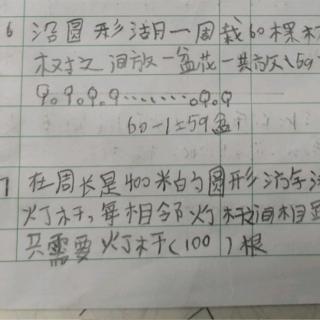 6 沿圆形湖一周栽60棵
树之间放一盆花一共放(59
60-1=59盆
7 在周长是400米的圆形
灯杆,每相邻灯杆间相
只需要灯杆(100)根